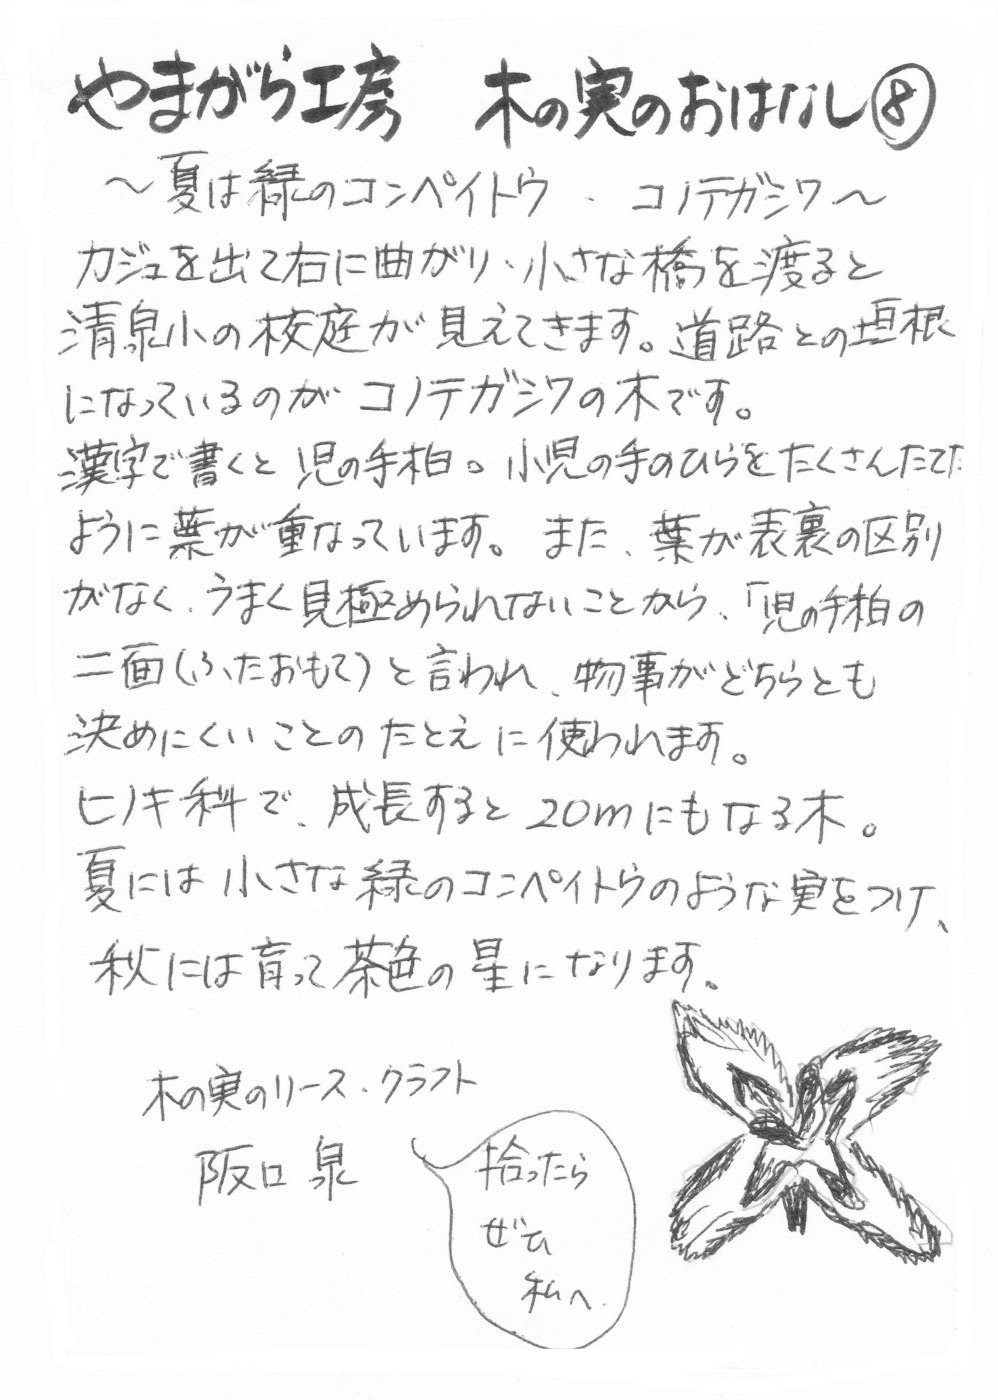 やまがら工房　木の実のおはなし⑧
～夏は緑のコンペイトウ・コノテガシワ～
カジュを出て右に曲がり、小さな橋を渡ると
清泉小の校庭が見えてきます。道路との垣根
になっているのがコノテガシワの木です。
漢字で書くと児の手柏。小児の手のひらをたくさんたてた
ように葉が重なっています。また、葉が表裏の区別
がなく、うまく見極められないことから、「児の手柏の
二面(ふたおもて)と言われ、物事がどちらとも
決めにくいことのたとえに使われます。
ヒノキ科で、成長すると20mにもなる木。
夏には小さな緑のコンペイトウのような実をつけ、
秋には育って茶色の星になります。
木の実のリース・クラフト
阪口泉
拾ったら
ぜひ
私へ